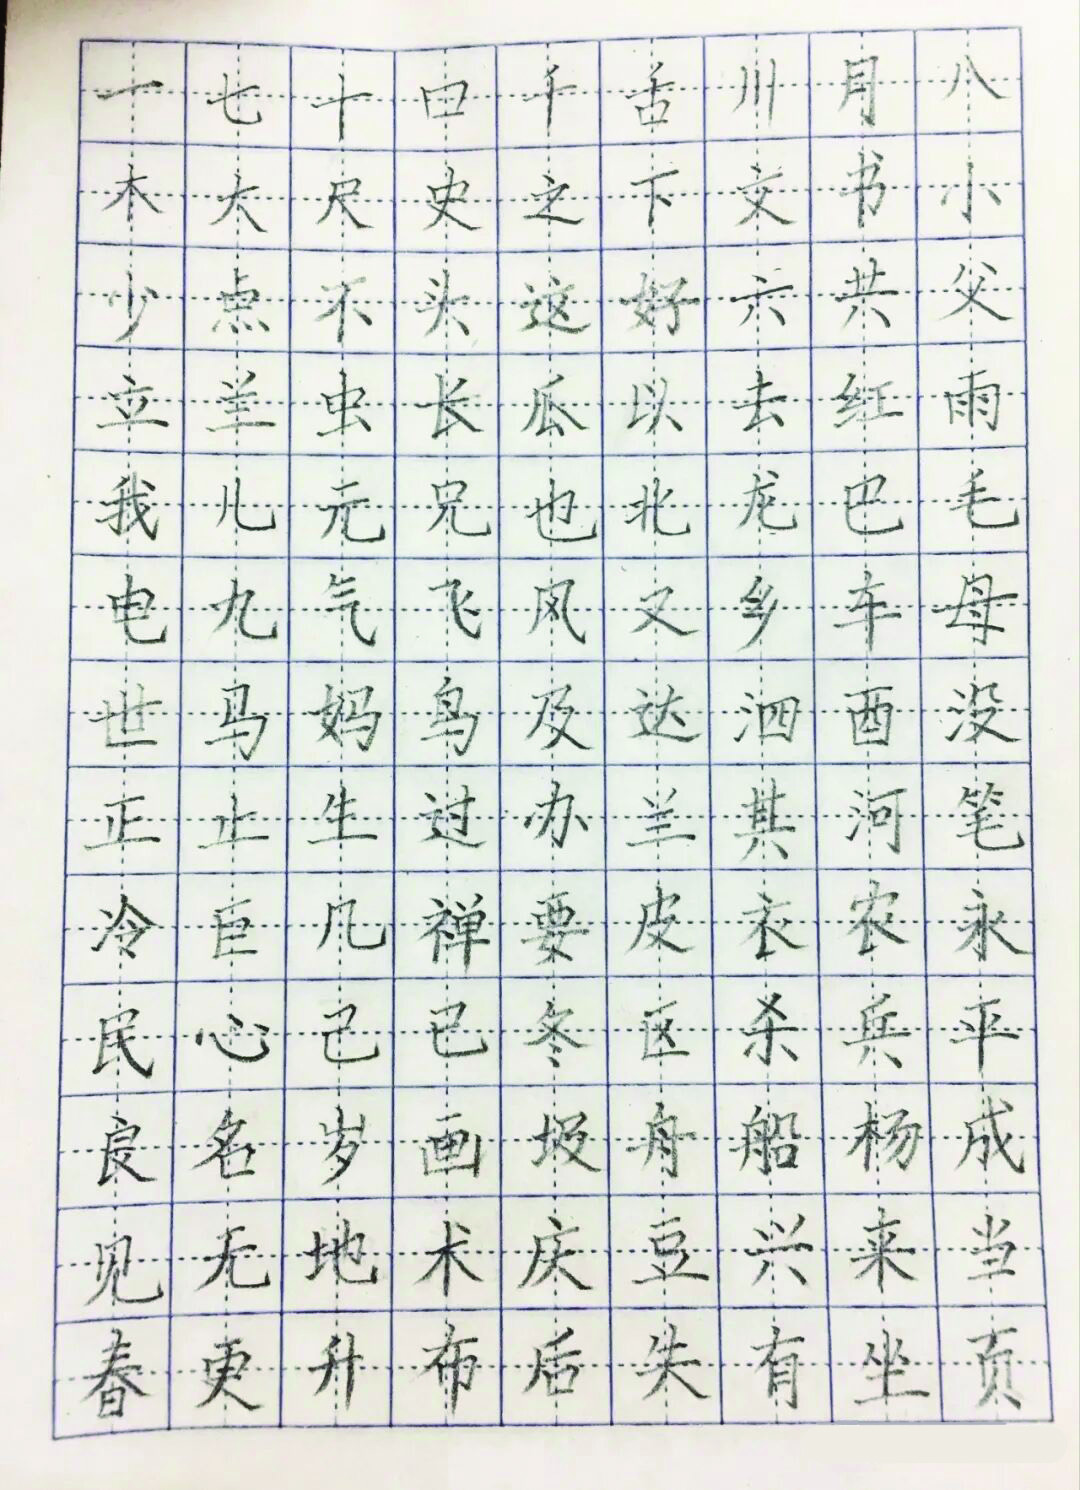 一七十曰千舌川月八
木大尺史之下交书小
少点不头这好六共父
立羊虫长瓜以去红雨
我儿元兄也北龙巴毛
电九气飞风又乡车母
世马妈鸟及达泗酉没
正止生过办兰其河笔
冷巨几禅要皮衣农永
民心己已冬区杀兵平
良名岁画圾舟船杨成
见无地术庆豆兴来当
春更升布后失有坐页